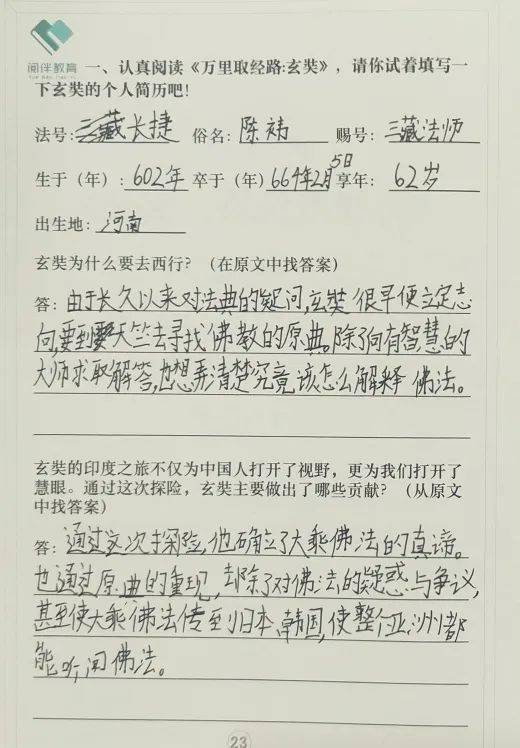 阅伴教育
一、认真阅读《万里取经路:玄奘》，请你试着填写一
下玄奘的个人简历吧!
法号: 三藏长捷 俗名: 陈祎 赐号: 三藏法师
生于（年）: 602年 卒于（年）664年2月5日 享年: 62岁
出生地: 河南
玄奘为什么要去西行? （在原文中找答案）
答: 由于长久以来对法典的疑问,玄奘很早便立定志
向,要到天竺去寻找佛教的原典。除了向有智慧的
大师求取解答,也想弄清楚究竟该怎么解释佛法。
玄奘的印度之旅不仅为中国人打开了视野，更为我们打开了
慧眼。通过这次探险，玄奘主要做出了哪些贡献? （从原文
中找答案）
答: 通过这次探险,他确立了大乘佛法的真谛。
也通过原典的重现,去除了对佛法的疑惑与争议,
甚至使大乘佛法传至日本、韩国,使整个亚洲都
能听闻佛法。
23